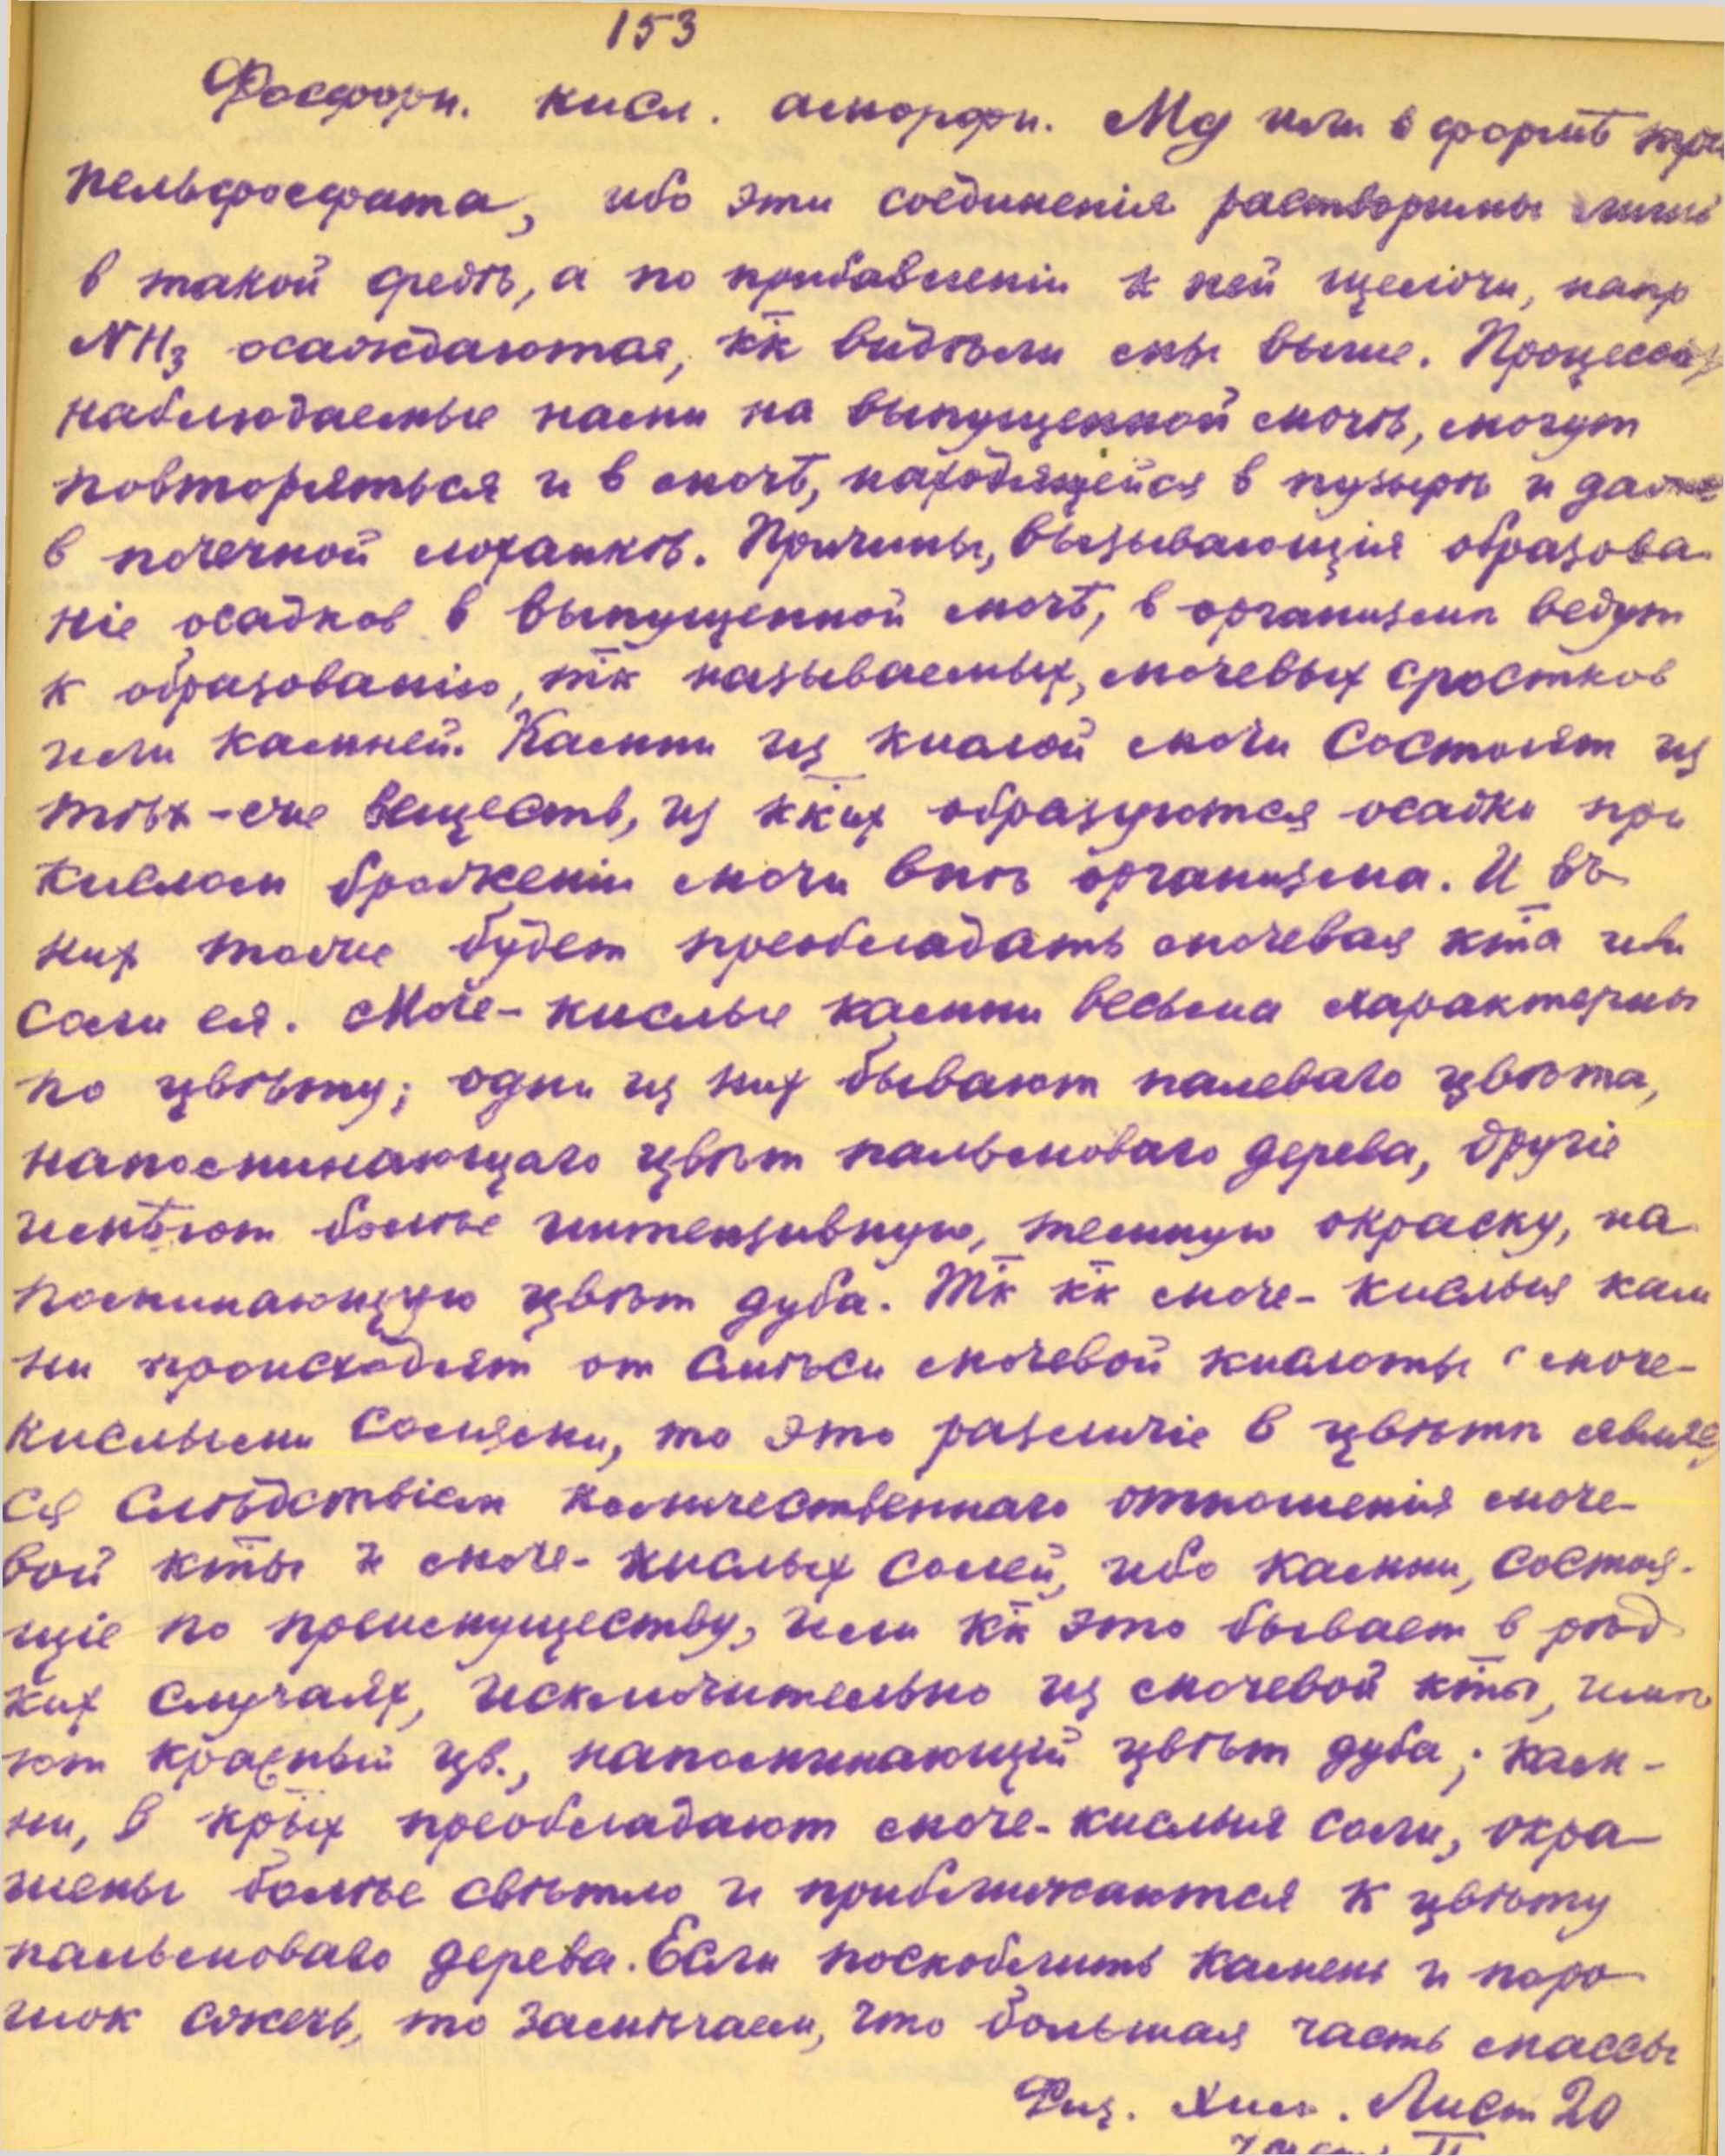 153
Фосфорн. кисл. аморфн. Mg или в формѣ три
пельфосфата, ибо эти соединенія растворимы лишь
в такой средѣ, а по прибавленіи к ней щелочи, напр
NH3 осаждаются, кк видѣли мы выше. Процессы,
наблюдаемые нами на выпущенной мочѣ, могут
повторяться и в мочѣ, находящейся в пузырѣ и даже
в почечной лоханкѣ. Причины, вызывающія образова-
ніе осадков в выпущенной мочѣ, в организмѣ ведут
к образованію, тк называемых, мочевых сростков
или камней. Камни из кислой мочи состоят из
тѣх-же веществ, из кких образуются осадки при
кислом броженіи мочи внѣ организма. И въ
них тоже будет преобладать мочевая кта или
соли ея. Моче-кислые камни весьма характерны
по цвѣту; одни из них бывают палеваго цвѣта,
напоминающаго цвѣт пальмоваго дерева, другіе
имѣют болѣе интензивную, темную окраску, на
поминающую цвѣт дуба. Тк кк моче-кислыя кам
ни происходят от смѣси мочевой кислоты с моче-
кислыми солями, то это различіе в цвѣтѣ являет
ся слѣдствіем количественнаго отношенія моче-
вой кты и моче-кислых солей, ибо камни, состоя-
щіе по преимуществу, или кк это бывает в рѣд
ких случаях, исключительно из мочевой кты, имѣ
ют красный цв., напоминающій цвѣт дуба; кам-
ни, в крых преобладают моче-кислыя соли, окра-
шены болѣе свѣтло и приближаются к цвѣту
пальмоваго дерева. Если поскоблить камень и поро
шок сжечь, то замѣчаем, что большая часть массы
Физ. Хим. Лист 20
Часть II